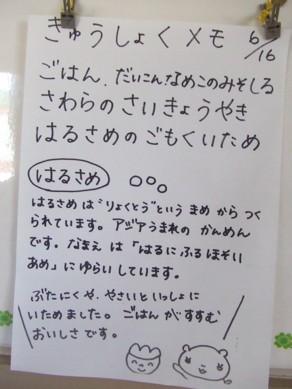 きゅうしょくメモ 6/16
ごはん、だいこんなめこのみそしる
さわらのさいきょうやき
はるさめのごもくいため
はるさめ
はるさめは"りょくとう"という まめ からつく
られています。アジアうまれの かんめん
です。なまえ は「はるにふるほそい
あめ」にゆらいしています。
ぶたにくや、やさいといっしょに
いためました。ごはん がすすむ
おいしさです。